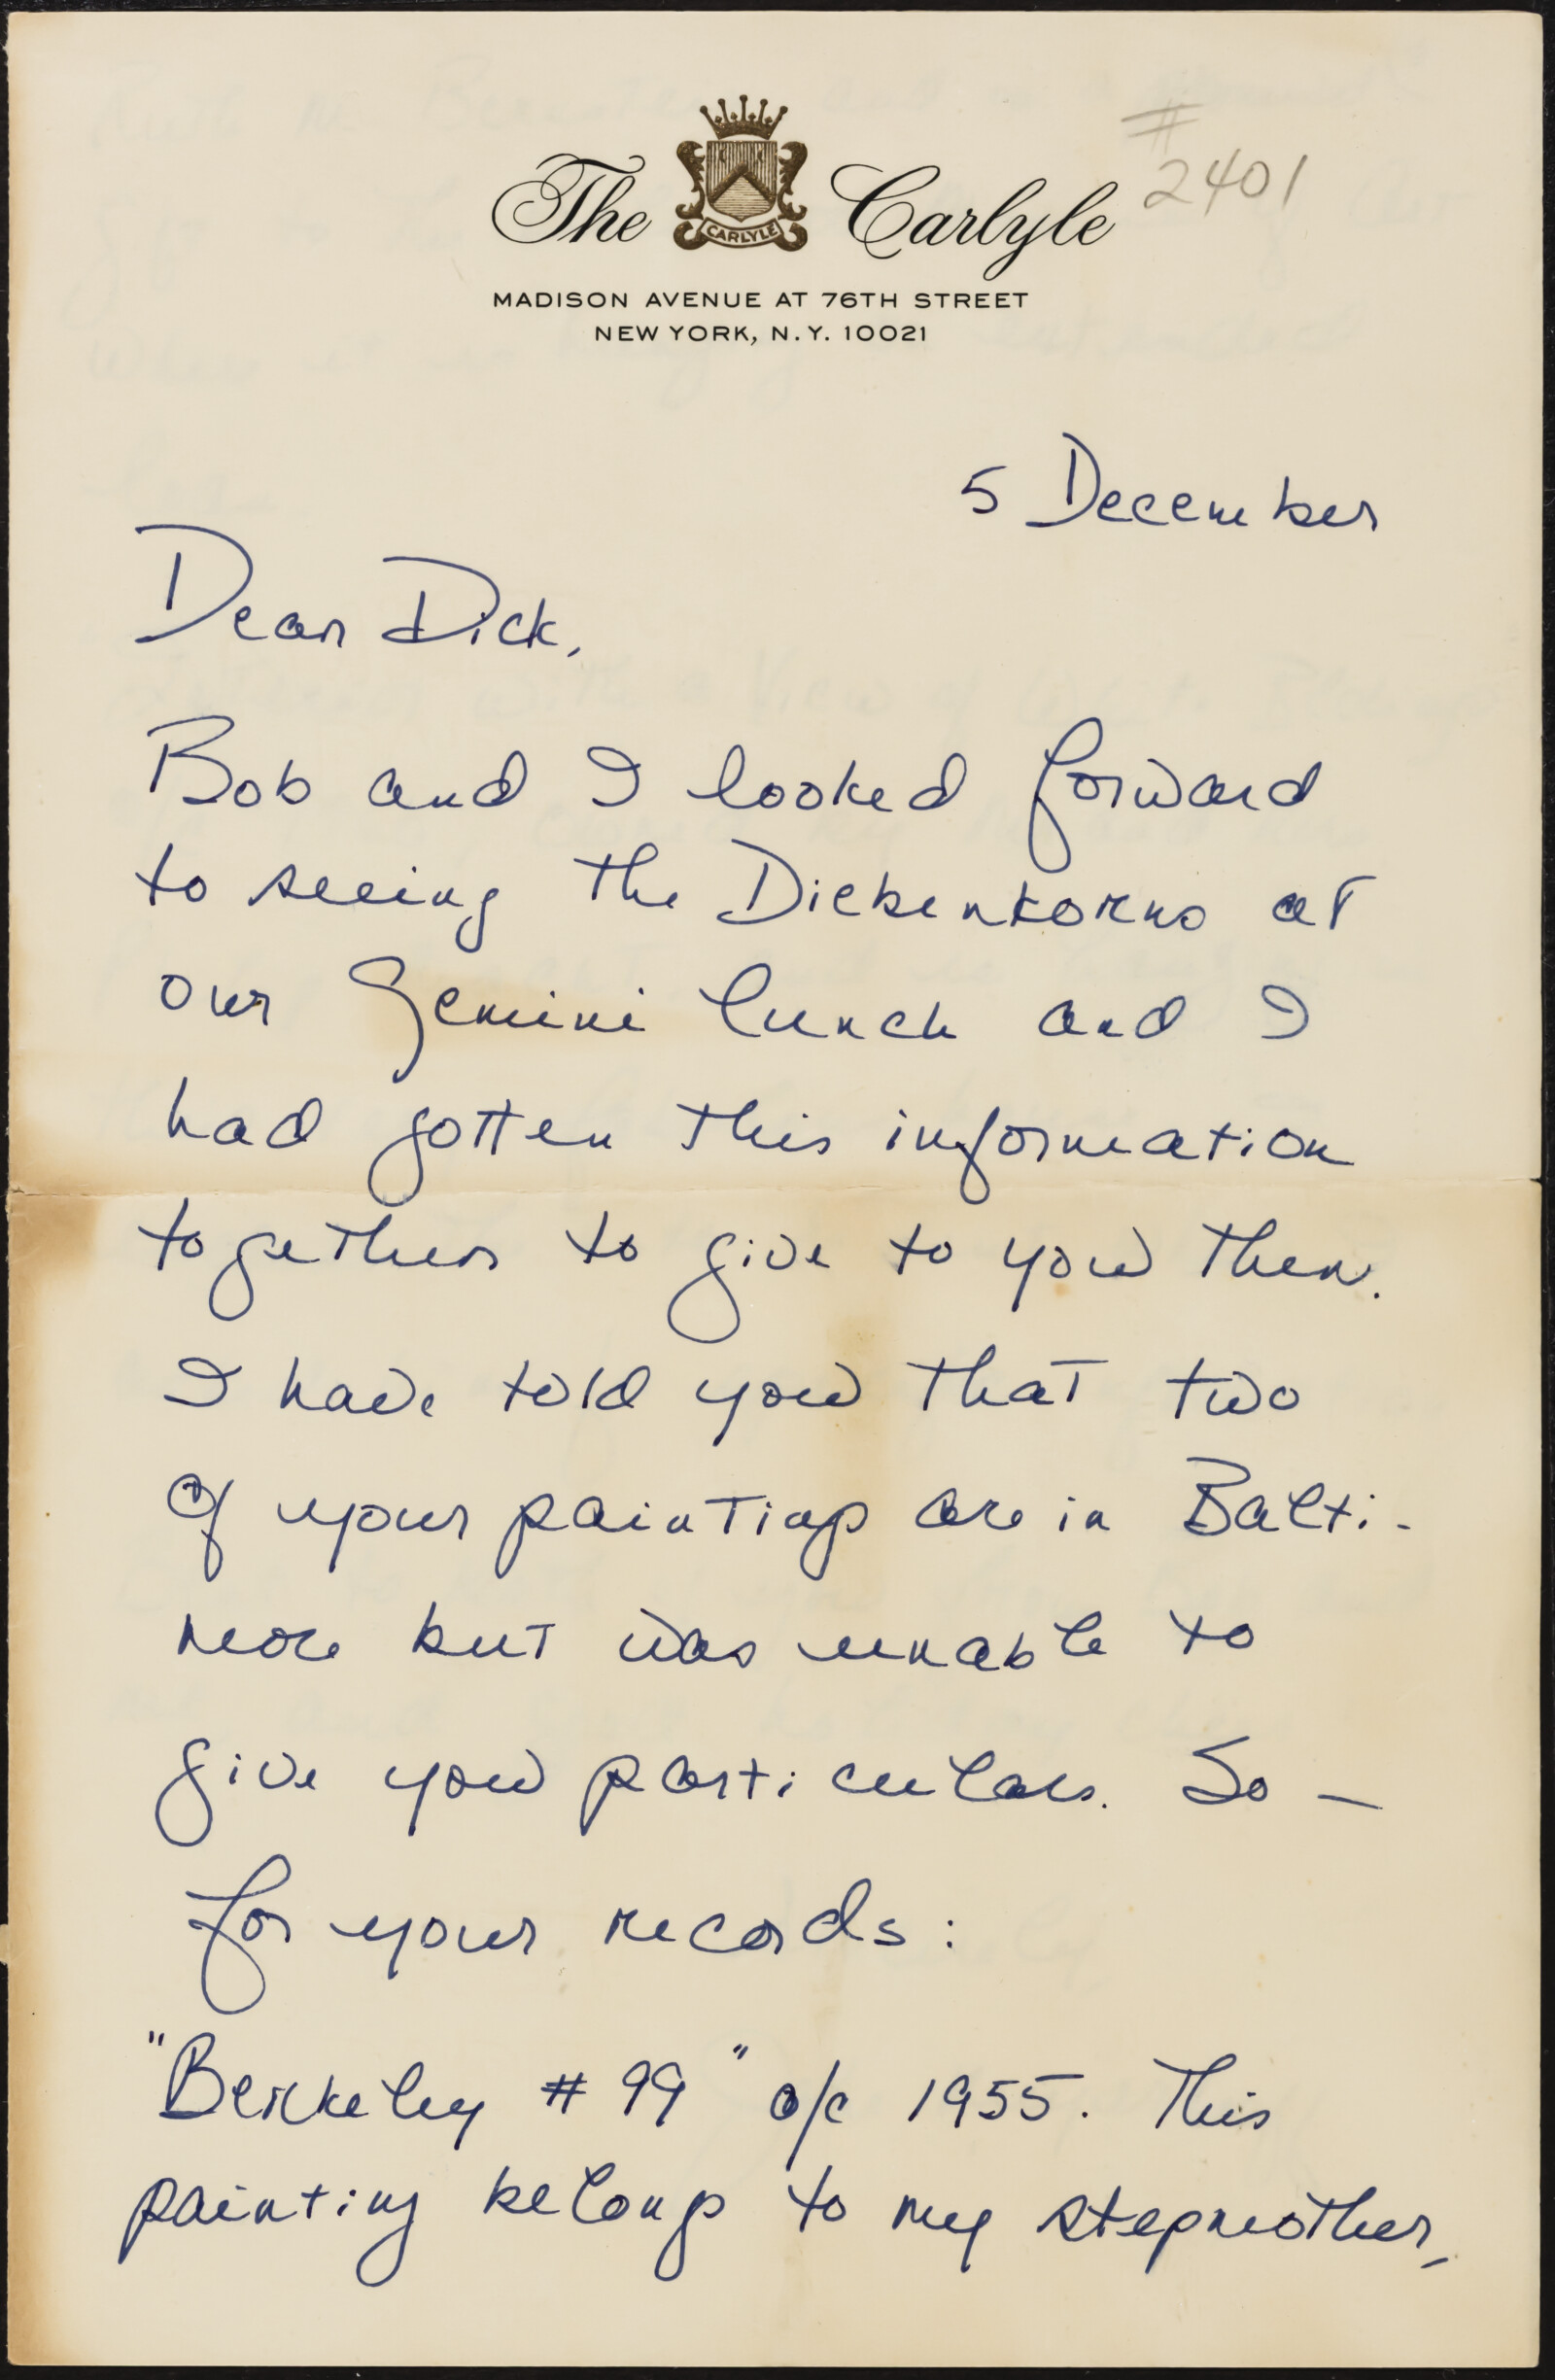 #
2401
The Carlyle
CARLYLE
MADISON AVENUE AT 76TH STREET
NEW YORK, N.Y. 10021
5 December
Dear Dick,
Bob and I looked forward
to seeing the Diebenkorns at
our Gemini lunch and I
had gotten this information
together to give to you then.
I have told you that two
of your paintings are in Balti-
more but was unable to
give you particulars. So —
for your records:
"Berkeley # 99" o/c 1955. This
painting belongs to my stepmother,